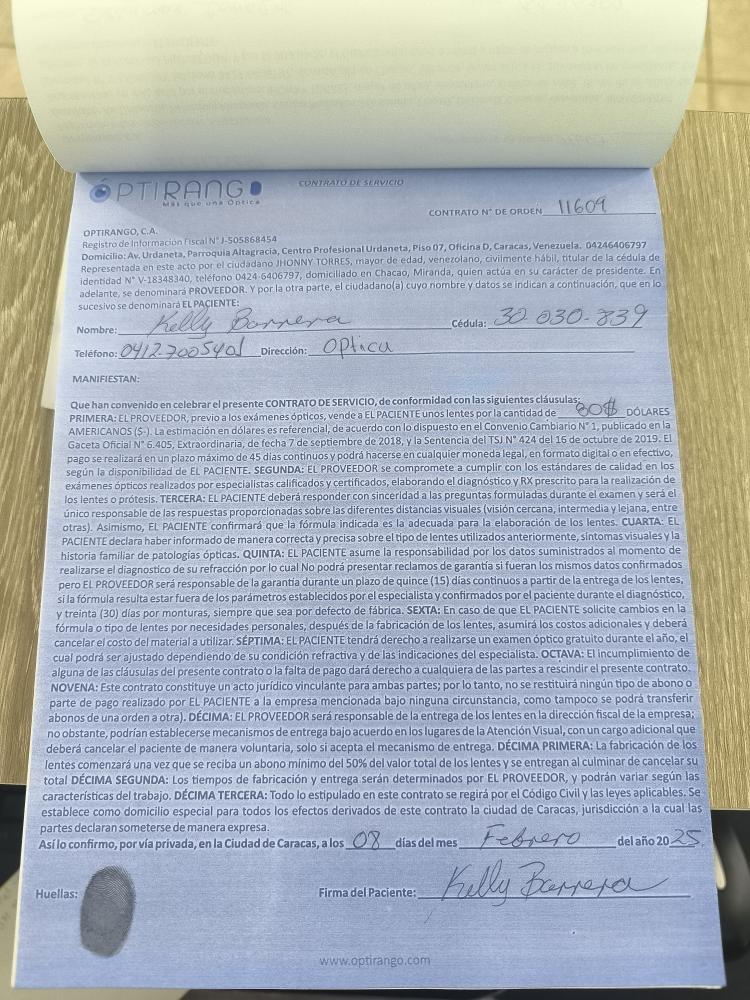 ÓPTIRANGO
Más que una Óptica
CONTRATO DE SERVICIO
CONTRATO N° DE ORDEN 11609
OPTIRANGO, C.A.
Registro de Información Fiscal N° J-505868454
Domicilio: Av. Urdaneta, Parroquia Altagracia, Centro Profesional Urdaneta, Piso 07, Oficina D, Caracas, Venezuela. 04246406797
Representada en este acto por el ciudadano JHONNY TORRES, mayor de edad, venezolano, civilmente hábil, titular de la cédula de
identidad N° V-18348340, teléfono 0424-6406797, domiciliado en Chacao, Miranda, quien actúa en su carácter de presidente. En
adelante, se denominará PROVEEDOR. Y por la otra parte, el ciudadano(a) cuyo nombre y datos se indican a continuación, que en lo
sucesivo se denominará EL PACIENTE:
Nombre: Kelly Barrera Cédula: 30 030-839
Teléfono: 0412-7005401 Dirección: Optica
MANIFIESTAN:
Que han convenido en celebrar el presente CONTRATO DE SERVICIO, de conformidad con las siguientes cláusulas:
PRIMERA: EL PROVEEDOR, previo a los exámenes ópticos, vende a EL PACIENTE unos lentes por la cantidad de 80$ DÓLARES
AMERICANOS ($-). La estimación en dólares es referencial, de acuerdo con lo dispuesto en el Convenio Cambiario N° 1, publicado en la
Gaceta Oficial N° 6.405, Extraordinaria, de fecha 7 de septiembre de 2018, y la Sentencia del TSJ N° 424 del 16 de octubre de 2019. El
pago se realizará en un plazo máximo de 45 días continuos y podrá hacerse en cualquier moneda legal, en formato digital o en efectivo,
según la disponibilidad de EL PACIENTE. SEGUNDA: EL PROVEEDOR se compromete a cumplir con los estándares de calidad en los
exámenes ópticos realizados por especialistas calificados y certificados, elaborando el diagnóstico y RX prescrito para la realización de
los lentes o prótesis. TERCERA: EL PACIENTE deberá responder con sinceridad a las preguntas formuladas durante el examen y será el
único responsable de las respuestas proporcionadas sobre las diferentes distancias visuales (visión cercana, intermedia y lejana, entre
otras). Asimismo, EL PACIENTE confirmará que la fórmula indicada es la adecuada para la elaboración de los lentes. CUARTA: EL
PACIENTE declara haber informado de manera correcta y precisa sobre el tipo de lentes utilizados anteriormente, síntomas visuales y la
historia familiar de patologías ópticas. QUINTA: EL PACIENTE asume la responsabilidad por los datos suministrados al momento de
realizarse el diagnostico de su refracción por lo cual No podrá presentar reclamos de garantía si fueran los mismos datos confirmados
pero EL PROVEEDOR será responsable de la garantía durante un plazo de quince (15) días continuos a partir de la entrega de los lentes,
si la fórmula resulta estar fuera de los parámetros establecidos por el especialista y confirmados por el paciente durante el diagnóstico,
y treinta (30) días por monturas, siempre que sea por defecto de fábrica. SEXTA: En caso de que EL PACIENTE solicite cambios en la
fórmula o tipo de lentes por necesidades personales, después de la fabricación de los lentes, asumirá los costos adicionales y deberá
cancelar el costo del material a utilizar. SÉPTIMA: EL PACIENTE tendrá derecho a realizarse un examen óptico gratuito durante el año, el
cual podrá ser ajustado dependiendo de su condición refractiva y de las indicaciones del especialista. OCTAVA: El incumplimiento de
alguna de las cláusulas del presente contrato o la falta de pago dará derecho a cualquiera de las partes a rescindir el presente contrato.
NOVENA: Este contrato constituye un acto jurídico vinculante para ambas partes; por lo tanto, no se restituirá ningún tipo de abono o
parte de pago realizado por EL PACIENTE a la empresa mencionada bajo ninguna circunstancia, como tampoco se podrá transferir
abonos de una orden a otra). DÉCIMA: EL PROVEEDOR será responsable de la entrega de los lentes en la dirección fiscal de la empresa;
no obstante, podrían establecerse mecanismos de entrega bajo acuerdo en los lugares de la Atención Visual, con un cargo adicional que
deberá cancelar el paciente de manera voluntaria, solo si acepta el mecanismo de entrega. DÉCIMA PRIMERA: La fabricación de los
lentes comenzará una vez que se reciba un abono mínimo del 50% del valor total de los lentes y se entregan al culminar de cancelar su
total DÉCIMA SEGUNDA: Los tiempos de fabricación y entrega serán determinados por EL PROVEEDOR, y podrán variar según las
características del trabajo. DÉCIMA TERCERA: Todo lo estipulado en este contrato se regirá por el Código Civil y las leyes aplicables. Se
establece como domicilio especial para todos los efectos derivados de este contrato la ciudad de Caracas, jurisdicción a la cual las
partes declaran someterse de manera expresa.
Así lo confirmo, por vía privada, en la Ciudad de Caracas, a los 08 días del mes Febrero del año 2025
Huellas: Firma del Paciente: Kelly Barrera
www.optirango.com